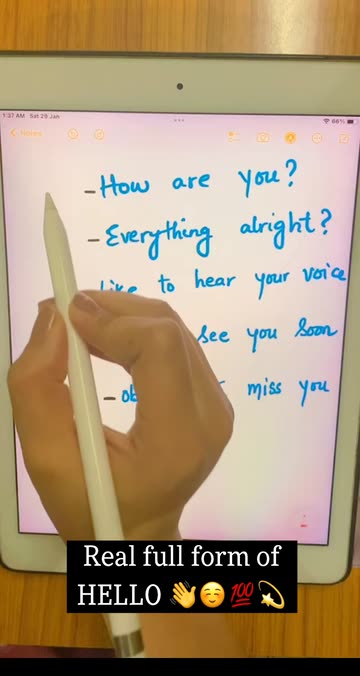 1:37 AM Sat 29 Jan
66%
Notes
-How are you?
-Everything alright?
Like to hear your voice
see you soon
- miss you
Real full form of
HELLO 👋☺️💯💫